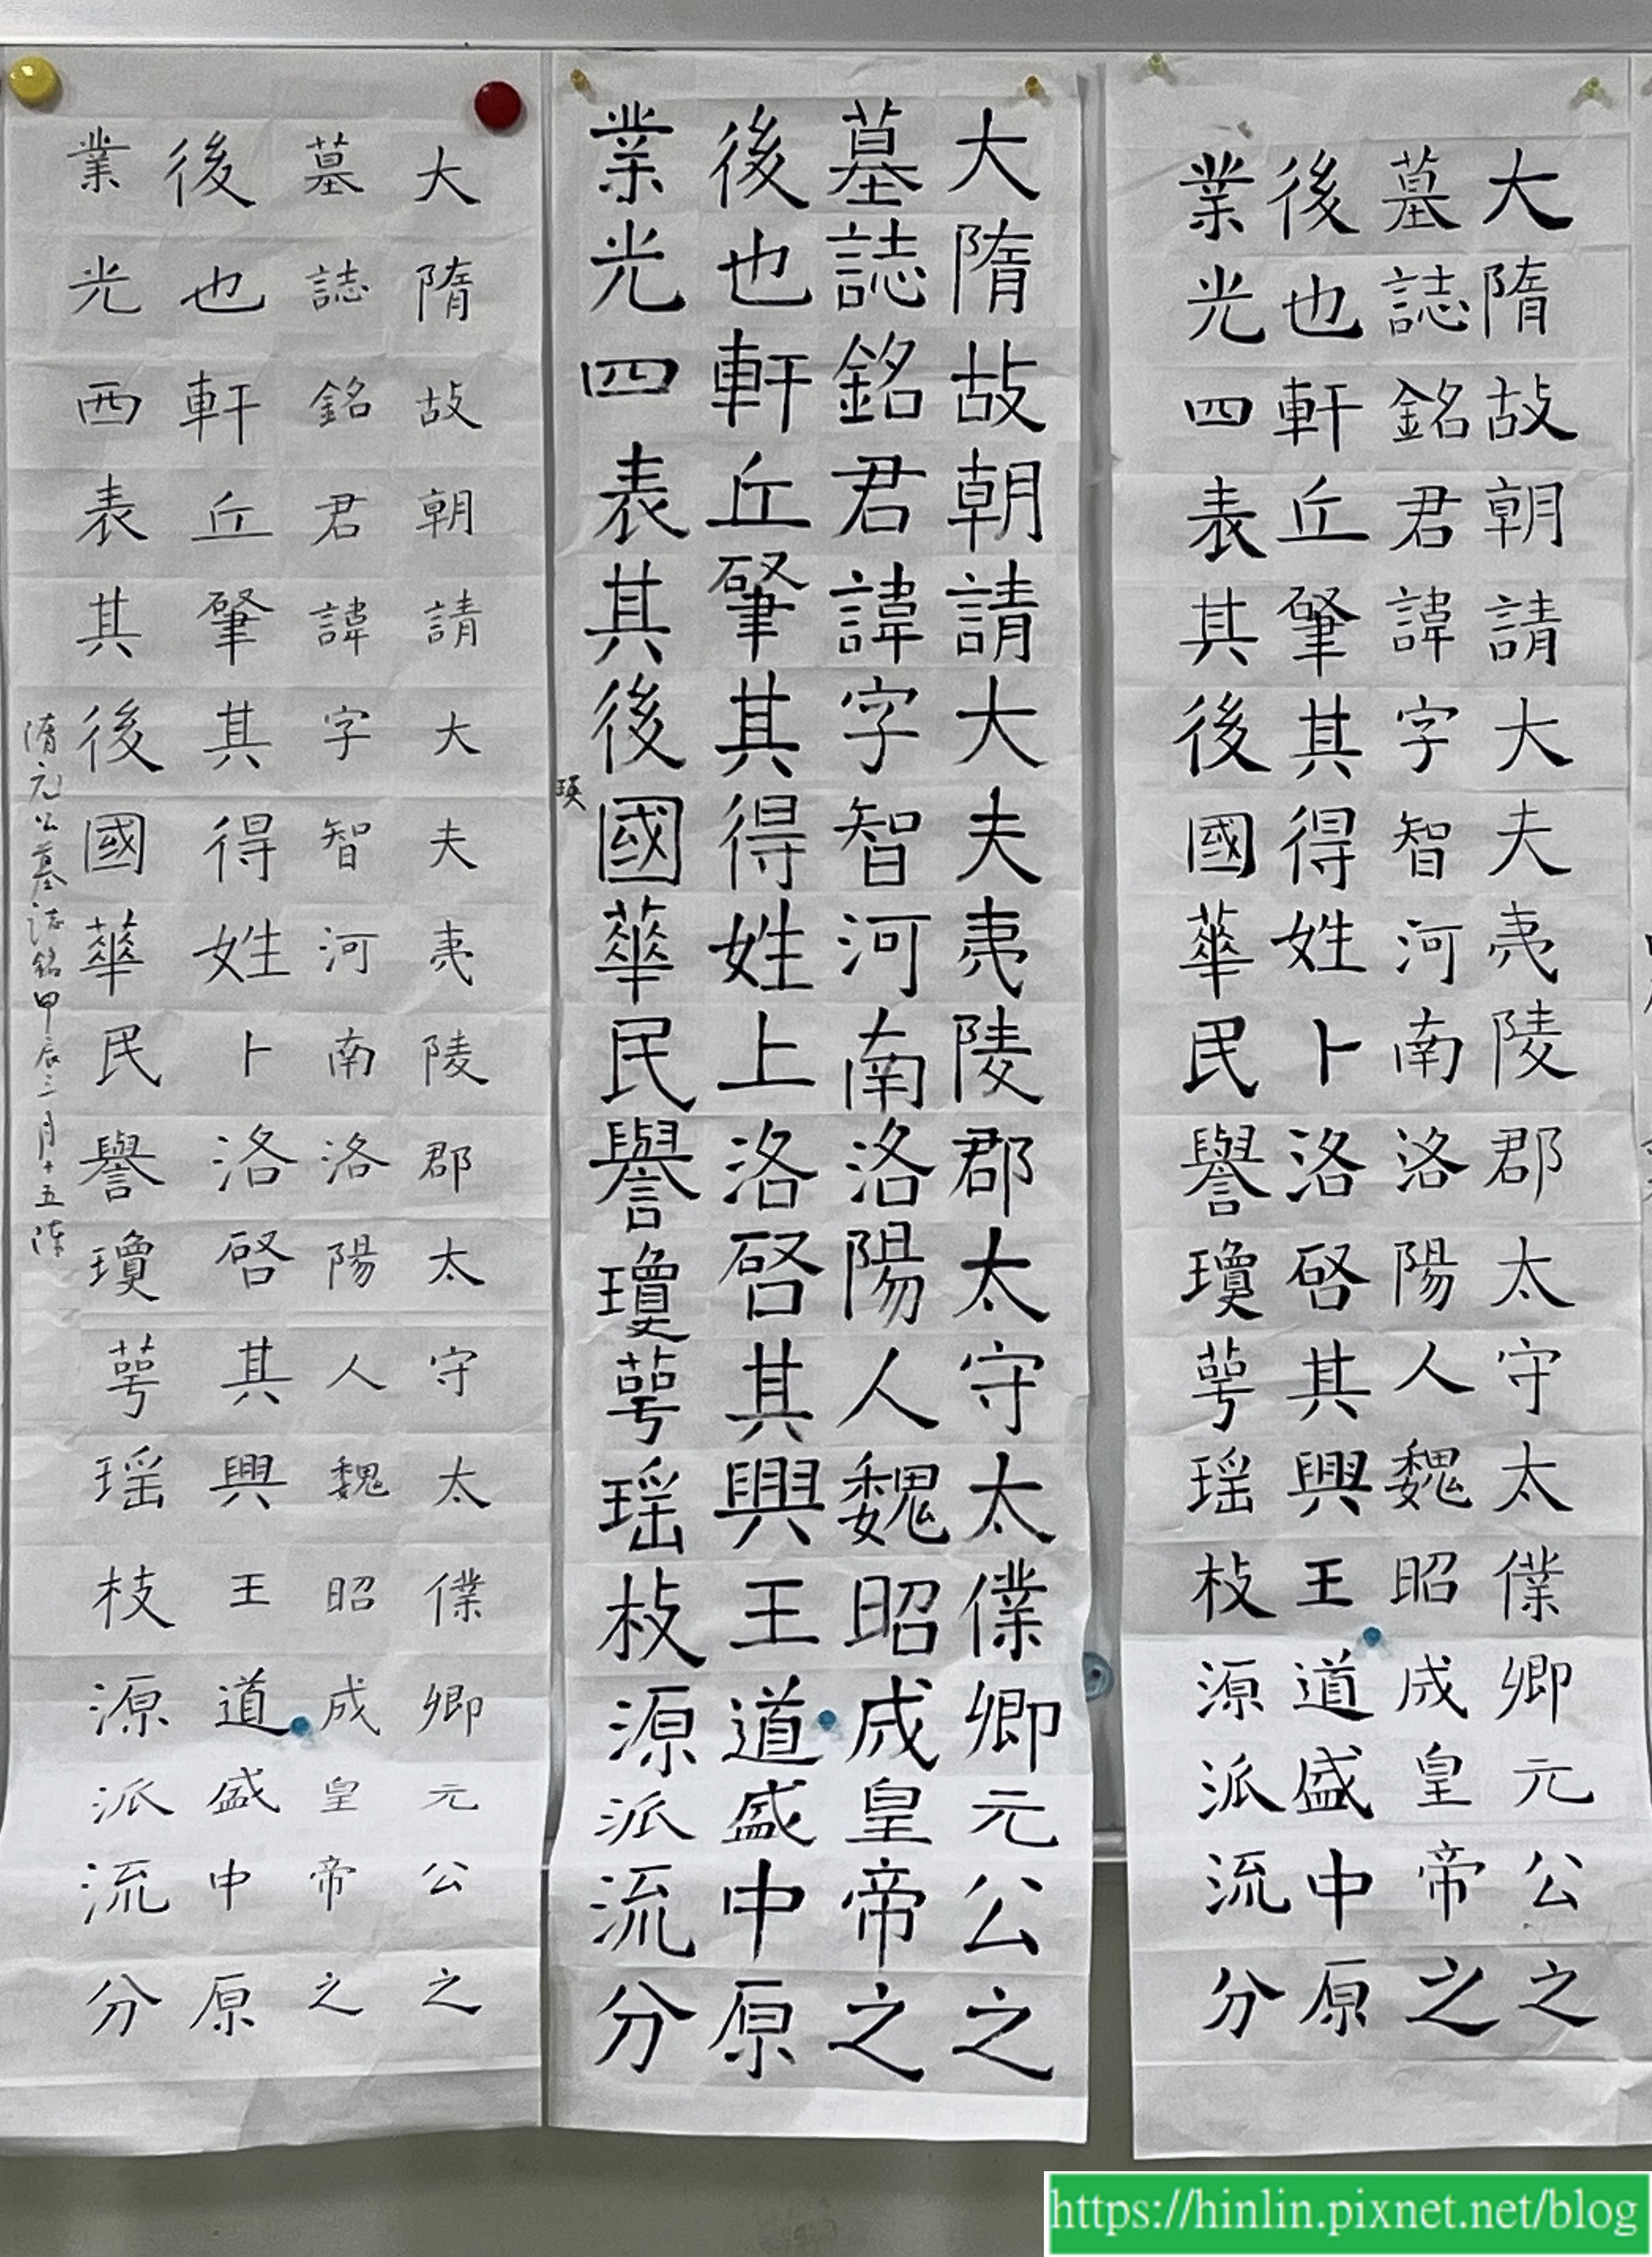 大隋故朝請大夫夷陵郡太守太僕卿元公之
墓誌銘君諱字智河南洛陽人魏昭成皇帝之
後也軒丘肇其得姓卜洛啓其興王道盛中原
業光四表其後國華民譽瓊萼瑶枝源派流分
大隋故朝請大夫夷陵郡太守太僕卿元公之
墓誌銘君諱字智河南洛陽人魏昭成皇帝之
後也軒丘肇其得姓上洛啓其興王道盛中原
業光四表其後國華民譽瓊萼瑶枝源派流分
瑛
大隋故朝請大夫夷陵郡太守太僕卿元公之
墓誌銘君諱字智河南洛陽人魏昭成皇帝之
後也軒丘肇其得姓卜洛啓其興王道盛中原
業光西表其後國華民譽瓊萼瑶枝源派流分
隋元公墓誌銘甲辰三月十五陳
https://hinlin.pixnet.net/blog